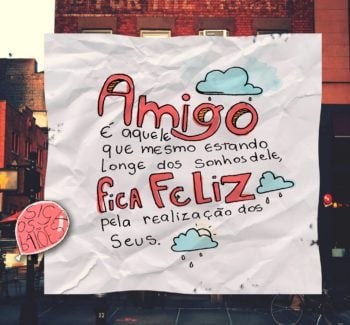 Amigo
É aquele
que mesmo estando
longe dos sonhos dele,
fica FELIZ
pela realização dos
seus.
SIGA
OS
BALÕES